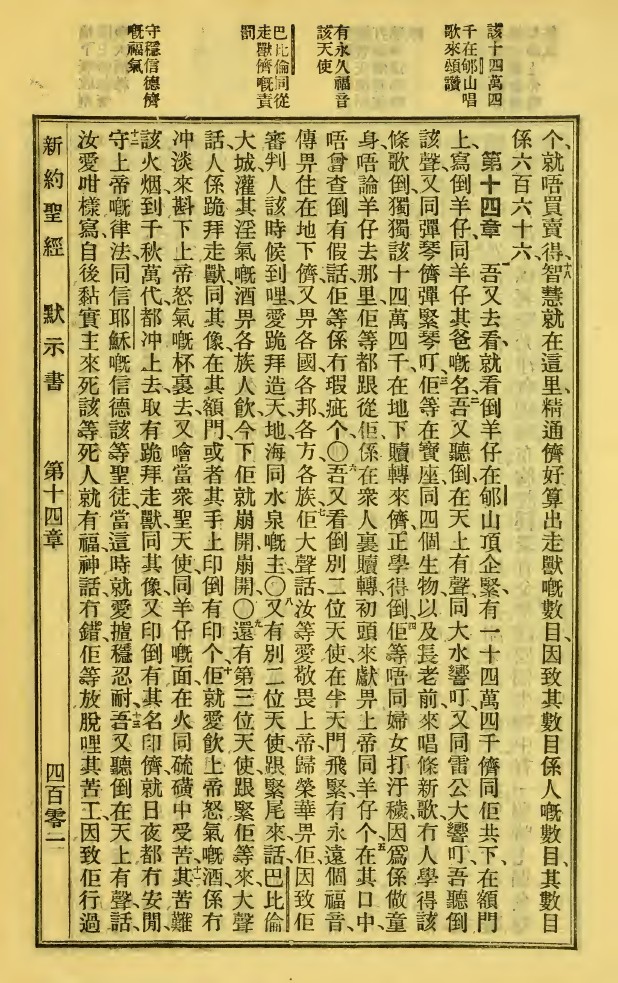 該十四萬四
千在郇山唱
歌來頌讚
有永久福音
該天使
巴比倫同從
走獸儕嘅責
罰
守穩信德儕
嘅福氣
个、就唔買賣得、十八智慧就在這里、精通儕好算出走獸嘅數目、因致其數目係人嘅數目、其數目
係六百六十六、
第十四章 吾又去看、就看倒羊仔在郇山頂企緊、有一十四萬四千儕同佢共下、在額門
上寫倒羊仔同羊仔其爸嘅名、二吾又聽倒在天上有聲、同大水響叮、又同雷公大響叮、吾聽倒
該聲、又同彈琴儕彈緊琴叮、三佢等在寶座同四個生物、以及長老前來唱條新歌、冇人學得該
條歌倒、獨獨該十四萬四千在地下贖轉來儕正學得倒、四佢等唔同婦女打汙穢、因爲係做童
身、唔論羊仔去那里、佢等都跟從佢、係在衆人裏贖轉、初頭來獻畀上帝同羊仔个、五在其口中
唔曾查倒有假話、佢等係冇瑕疵个、〇六吾又看倒別二位天使在半天門飛、緊有永遠個福音、
傳畀住在地下儕、又畀各國各邦各方各族、七佢大聲話、汝等愛敬畏上帝、歸榮華畀佢、因致佢
審判人該時候到哩、愛跪拜造天地海同水泉嘅主、〇八又有別二位天使跟緊尾來話、巴比倫
大城灌其淫氣嘅酒畀各族人飲、今下佢就崩開崩開、〇九還有第三位天使跟緊佢等來、大聲
話、人係跪拜走獸同其像、在其額門或者其手上印倒有印个、十佢就愛飲上帝怒氣嘅酒、係冇
冲淡來斟下上帝怒氣嘅杯裏去、又噲當衆聖天使同羊仔嘅面、在火同硫磺中受苦、十一其苦難
該火烟到千秋萬代都冲上去、取有跪拜走獸同其像、又印倒有其名印儕、就日夜都冇安閒、
十二守上帝嘅律法、同信耶穌嘅信德、該等聖徒當這時就愛攎穩忍耐、十三吾又聽倒在天上有聲話、
汝愛咁樣寫、自後黏實主來死、該等死人就有福、神話冇錯、佢等放脫哩其苦工、因致佢行過
新約聖經 默示書 第十四章 四百零一